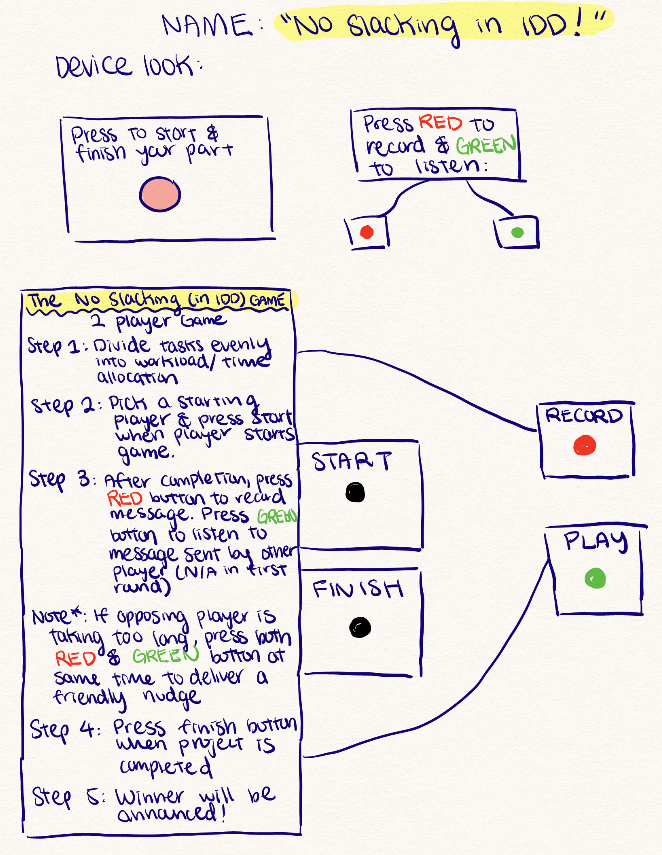 NAME: "No Slacking in IDD!"
Device look:
Press to start &
finish your part
Press RED to
record & GREEN
to listen:
The No Slacking (in IDD) GAME
2 player Game
Step 1: Divide tasks evenly
into workload/time
allocation
Step 2: Pick a starting
player & press start
when player starts
game.
Step 3: After completion, press
RED button to record
message. Press GREEN
button to listen to
message sent by other
player (N/A in first
round)
Note*: If opposing player is
taking too long, press both
RED & GREEN button at
same time to deliver a
friendly nudge
Step 4: Press finish button
when project is
completed
Step 5: Winner will be
annanced!
START
FINISH
RECORD
PLAY